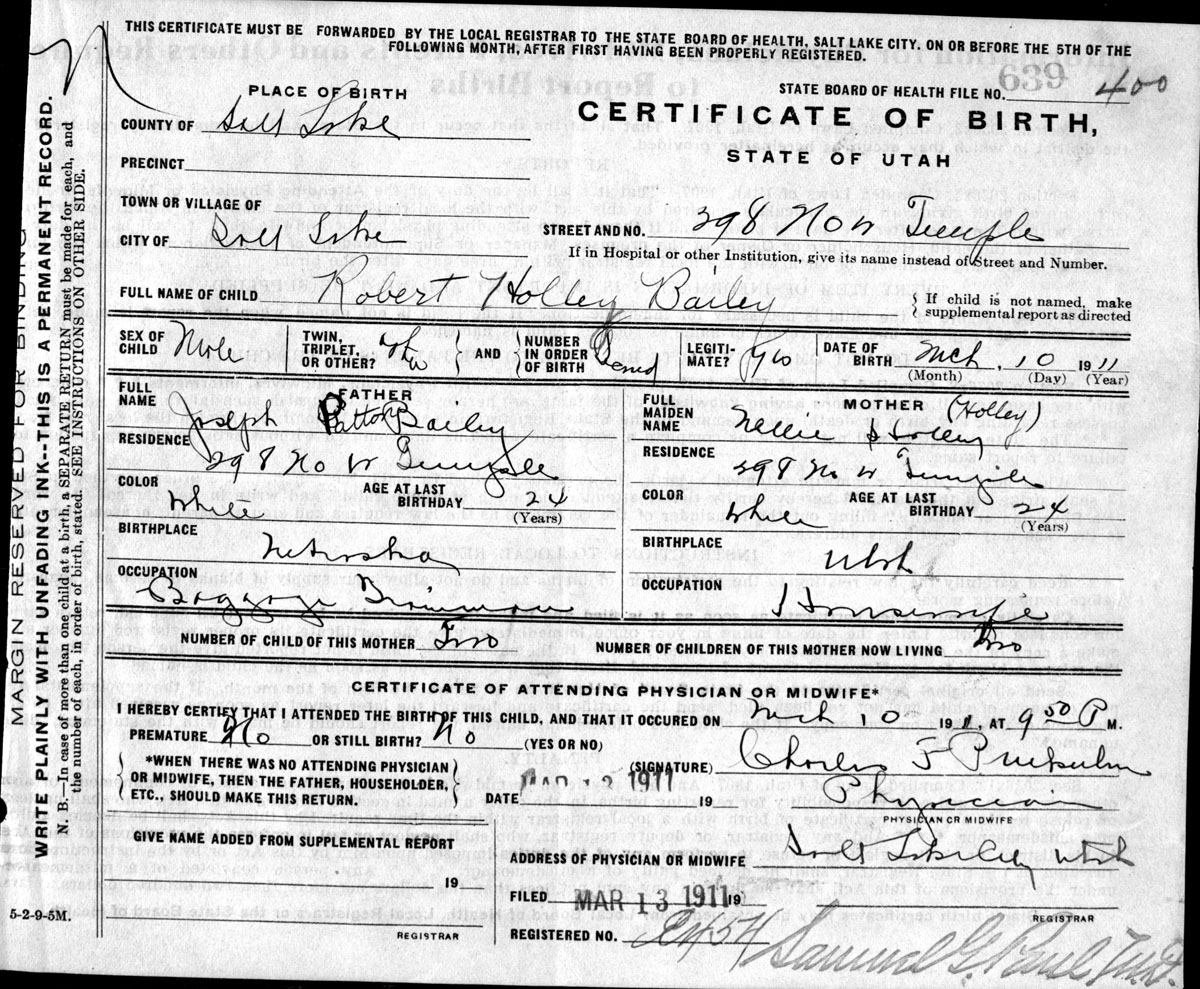 THIS CERTIFICATE MUST BE FORWARDED BY THE LOCAL REGISTRAR TO THE STATE BOARD OF HEALTH, SALT LAKE CITY. ON OR BEFORE THE 5TH OF THE
FOLLOWING MONTH, AFTER FIRST HAVING BEEN PROPERLY REGISTERED.
639
STATE BOARD OF HEALTH FILE NO. 400
PLACE OF BIRTH
CERTIFICATE OF BIRTH,
STATE OF UTAH
COUNTY OF Salt Lake
PRECINCT
TOWN OR VILLAGE OF
CITY OF Salt Lake
STREET AND NO. 298 No W Temple
If in Hospital or other Institution, give its name instead of Street and Number.
FULL NAME OF CHILD Robert Holley Bailey
{ If child is not named, make
supplemental report as directed
SEX OF CHILD Male
TWIN, TRIPLET, OR OTHER?
AND
NUMBER IN ORDER OF BIRTH
LEGITIMATE? Yes
DATE OF BIRTH Mch 10 1911
(Month) (Day) (Year)
FATHER
FULL NAME Joseph Patton Bailey
RESIDENCE
298 No W Temple
COLOR White
AGE AT LAST BIRTHDAY 24
(Years)
BIRTHPLACE
Nebraska
OCCUPATION
Baggage
MOTHER (Holley)
FULL MAIDEN NAME Nellie Holley
RESIDENCE
298 No W Temple
COLOR White
AGE AT LAST BIRTHDAY 24
(Years)
BIRTHPLACE
Utah
OCCUPATION
Housewife
NUMBER OF CHILD OF THIS MOTHER Two
NUMBER OF CHILDREN OF THIS MOTHER NOW LIVING Two
CERTIFICATE OF ATTENDING PHYSICIAN OR MIDWIFE*
I HEREBY CERTIFY THAT I ATTENDED THE BIRTH OF THIS CHILD, AND THAT IT OCCURED ON Mch 10 1911, AT 9 50 P M.
PREMATURE No OR STILL BIRTH? No (YES OR NO)
*WHEN THERE WAS NO ATTENDING PHYSICIAN
OR MIDWIFE, THEN THE FATHER, HOUSEHOLDER,
ETC., SHOULD MAKE THIS RETURN.
(SIGNATURE) Charles F
DATE MAR 13 1911 19
Physician
PHYSICIAN OR MIDWIFE
GIVE NAME ADDED FROM SUPPLEMENTAL REPORT
19
REGISTRAR
ADDRESS OF PHYSICIAN OR MIDWIFE Salt Lake City Utah
FILED MAR 13 1911 19
REGISTRAR
REGISTERED NO.
Samuel G. Paul M.D.
5-2-9-5M.
MARGIN RESERVED FOR BINDING
WRITE PLAINLY WITH UNFADING INK---THIS IS A PERMANENT RECORD.
N. B.—In case of more than one child at a birth, a SEPARATE RETURN must be made for each, and
the number of each, in order of birth, stated. SEE INSTRUCTIONS ON OTHER SIDE.